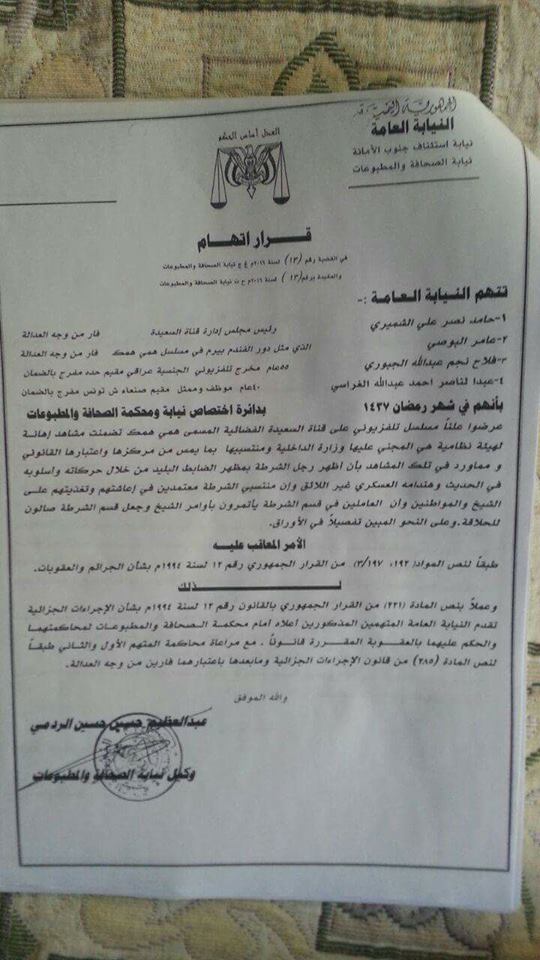 الجمهورية اليمنية
النيابة العامة
نيابة استئناف جنوب الأمانة
نيابة الصحافة والمطبوعات
العدل أساس الحكم
قــرار اتهــام
في القضية رقم (١٣) لسنة ٢٠١٦م غ ج نيابة الصحافة والمطبوعات
والمقيدة برقم (١٣) لسنة ٢٠١٦م ح ت نيابة الصحافة والمطبوعات
تتهم النيابة العامة :-
١-حامد نصر علي الشميري رئيس مجلس إدارة قناة السعيدة فار من وجه العدالة
٢-عامر البوصي الذي مثل دور الفندم بيرم في مسلسل همي همك فار من وجه العدالة
٣-فلاح نجم عبدالله الجبوري ٥٥عام مخرج تلفزيوني الجنسية عراقي مقيم حده مفرج بالضمان
٤-عبدا لناصر احمد عبدالله العراسي ٤٠عام موظف وممثل مقيم صنعاء ش تونس مفرج بالضمان
بأنهم في شهر رمضان ١٤٣٧ بدائرة اختصاص نيابة ومحكمة الصحافة والمطبوعات
عرضوا علناً مسلسل تلفزيوني على قناة السعيدة الفضائية المسمى همي همك تضمنت مشاهد إهانة
لهيئة نظامية هي المجني عليها وزارة الداخلية ومنتسبيها بما يمس من مركزها واعتبارها القانوني
و مماورد في تلك المشاهد بأن أظهر رجل الشرطة بمظهر الضابط البليد من خلال حركاته واسلوبه
في الحديث وهندامه العسكري غير اللائق وإن منتسبي الشرطة معتمدين في إعاشتهم وتغذيتهم على
الشيخ والمواطنين وأن العاملين في قسم الشرطة يأتمرون بأوامر الشيخ وجعل قسم الشرطة صالون
للحلاقة.وعلى النحو المبين تفصيلاً في الأوراق.
الأمر المعاقب عليه
طبقاً لنص المواد( ١٩٢، ٣/١٩٧) من القرار الجمهوري رقم ١٢ لسنة ١٩٩٤م بشأن الجرائم والعقوبات.
لــــذلك
وعملاً بنص المادة (٢٢١) من القرار الجمهوري بالقانون رقم ١٣ لسنة ١٩٩٤م بشأن الإجراءات الجزائية
تقدم النيابة العامة المتهمين المذكورين أعلاه أمام محكمة الصحافة والمطبوعات لمحاكمتهما
والحكم عليهما بالعقوبة المقررة قانوناً . مع مراعاة محاكمة المتهم الأول والثاني طبقاً
لنص المادة (٢٨٥) من قانون الإجراءات الجزائية ومابعدها باعتبارهما فارين من وجه العدالة.
والله الموفق
عبدالعظيم حسين حسين الردمي
وكيل نيابة الصحافة والمطبوعات